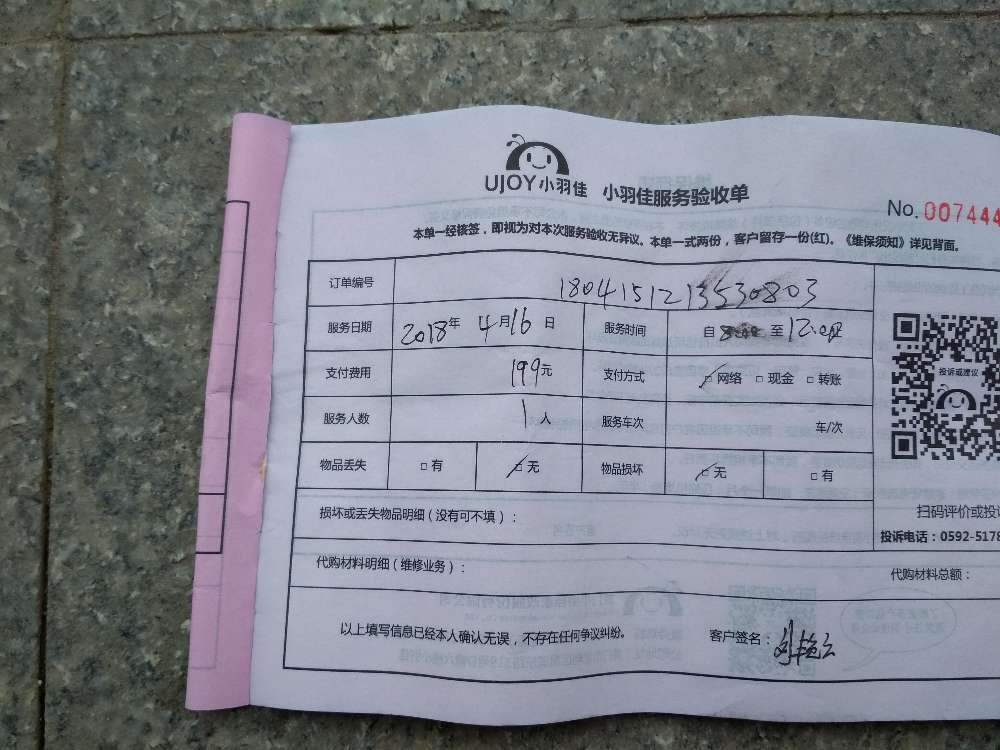 UJOY小羽佳 小羽佳服务验收单
No. 007444
本单一经核签，即视为对本次服务验收无异议。本单一式两份，客户留存一份(红)。《维保须知》详见背面。
订单编号 1804151213530803
服务日期 2018年 4月16日 服务时间 自 至 12:00
支付费用 199元 支付方式 □网络 □现金 □转账
服务人数 1人 服务车次 车/次
物品丢失 □有 □无 物品损坏 □无 □有
投诉或建议
损坏或丢失物品明细（没有可不填）：
扫码评价或投
投诉电话：0592-5178
代购材料明细（维修业务）：
代购材料总额：
以上填写信息已经本人确认无误，不存在任何争议纠纷。 客户签名：